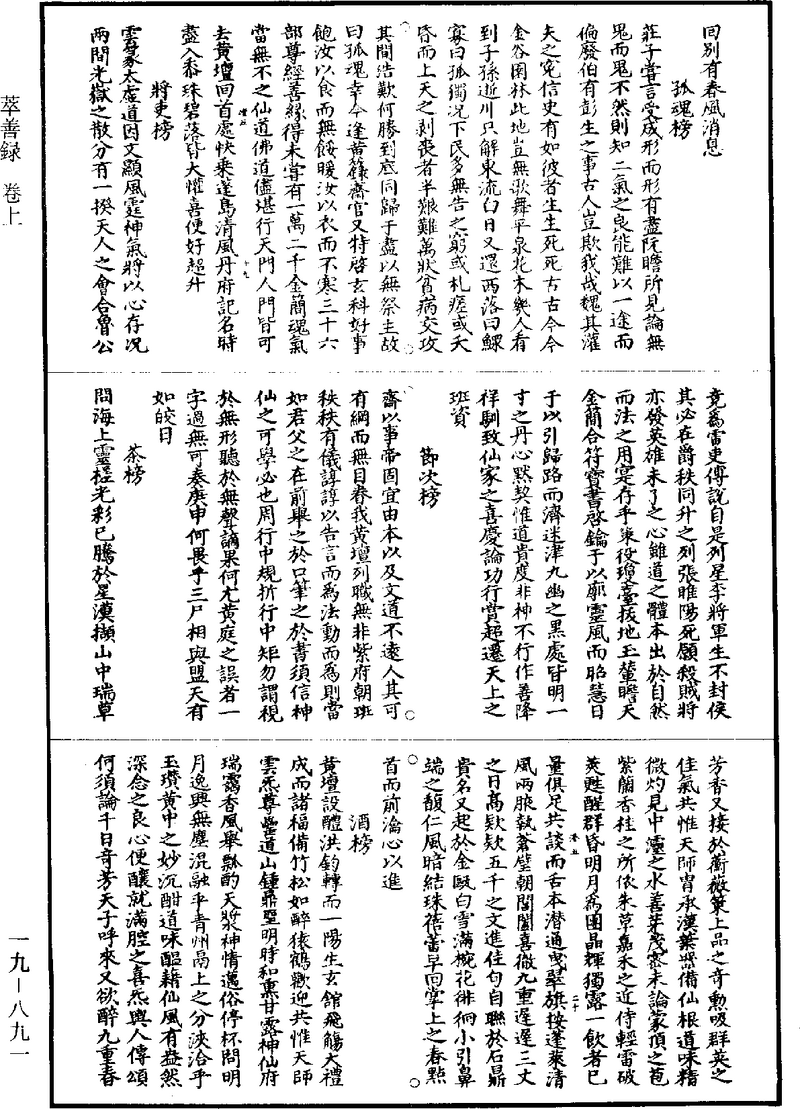 萃善録 卷上
一九－八九一
回別有春風消息
孤魂榜
莊子嘗言受成形而形有盡阮瞻所見論無
鬼而鬼不然則知二氣之良能難以一途而
偏廢伯有彭生之事古人豈欺我哉魏其灌
夫之冤信史有如彼者生生死死古古今今
金谷園林此地豈無歌舞平泉花木幾人看
到子孫逝川只解東流白日又還西落曰鰥
寡曰孤獨況下民多無告之窮或札瘥或夭
昏而上天之剥喪者半艱難萬狀貧病交攻
其間浩歎何勝到底同歸于盡以無祭主故
曰孤魂幸今逢黄籙齋官又特啓玄科好事
飽汝以食而無餒暖汝以衣而不寒三十六
部尊經善緣得未嘗有一萬二千金簡魂氣
當無不之仙道佛道儘堪行天門人門皆可
去黄壇回首處快乘蓬島清風丹府記名時
盡入黍珠碧落皆大懽喜便好超升
將吏榜
雲篆太虛道因文顯風霆神氣將以心存況
兩間光嶽之散分有一揆天人之會合魯公
竟爲雷吏傅說自是列星李將軍生不封侯
其必在爵秩同升之列張睢陽死願殺賊將
亦發英雄未了之心雖道之體本出於自然
而法之用寔存乎策役瓊臺拔地玉輦瞻天
金簡合符寶書啓鑰于以廓靈風而昭慧日
于以引歸路而濟迷津九幽之黑處皆明一
寸之丹心默契惟道貴度非神不行作善降
祥馴致仙家之喜慶論功行賞超遷天上之
班資
節次榜
齋以事帝固宜由本以及文道不遠人其可
有綱而無目眷我黄壇列職無非紫府朝班
秩秩有儀諄諄以告言而爲法動而爲則當
如君父之在前舉之於口筆之於書須信神
仙之可學必也周行中規折行中矩勿謂視
於無形聽於無聲謫果何尤黄庭之誤者一
字過無可奏庚申何畏乎三尸相與盟天有
如皎日
茶榜
問海上靈槎光彩已騰於星漢擷山中瑞草
芳香又接於蘅薇策上品之奇勳吸群英之
佳氣共惟天師胄承漢葉器備仙根道味精
微灼見中濡之水善芽茂密未論蒙頂之苞
紫蘭香桂之所依朱草嘉禾之近侍輕雷破
莢甦醒群昏明月爲團晶輝獨露一飲者已
量俱足共談而舌本潜通曳翠旗接蓬萊清
風兩腋款蒼璧朝閶闔喜微九重遲遲三丈
之日高歘歘五千之文進佳句自聯於石鼎
貴名又起於金甌白雪滿椀花徘徊小引鼻
端之馥仁風暗結珠蓓蕾早回掌上之春點
首而前瀹心以進
酒榜
黄壇設醴洪鈞轉而一陽生玄館飛觴大禮
成而諸福備竹松如醉猿鶴歡迎共惟天師
雲炁尊罍道山鍾鼎聖明時和熏甘露神仙府
瑞靄香風舉瓢酌天漿神情邁俗停杯問明
月逸興無塵混融乎青州鬲上之分浹洽乎
玉瓚黄中之妙沉酣道味醖藉仙風有盎然
深念之良心便釀就滿腔之喜炁與人傳頌
何須論千日奇芳天子呼來又欲醉九重春